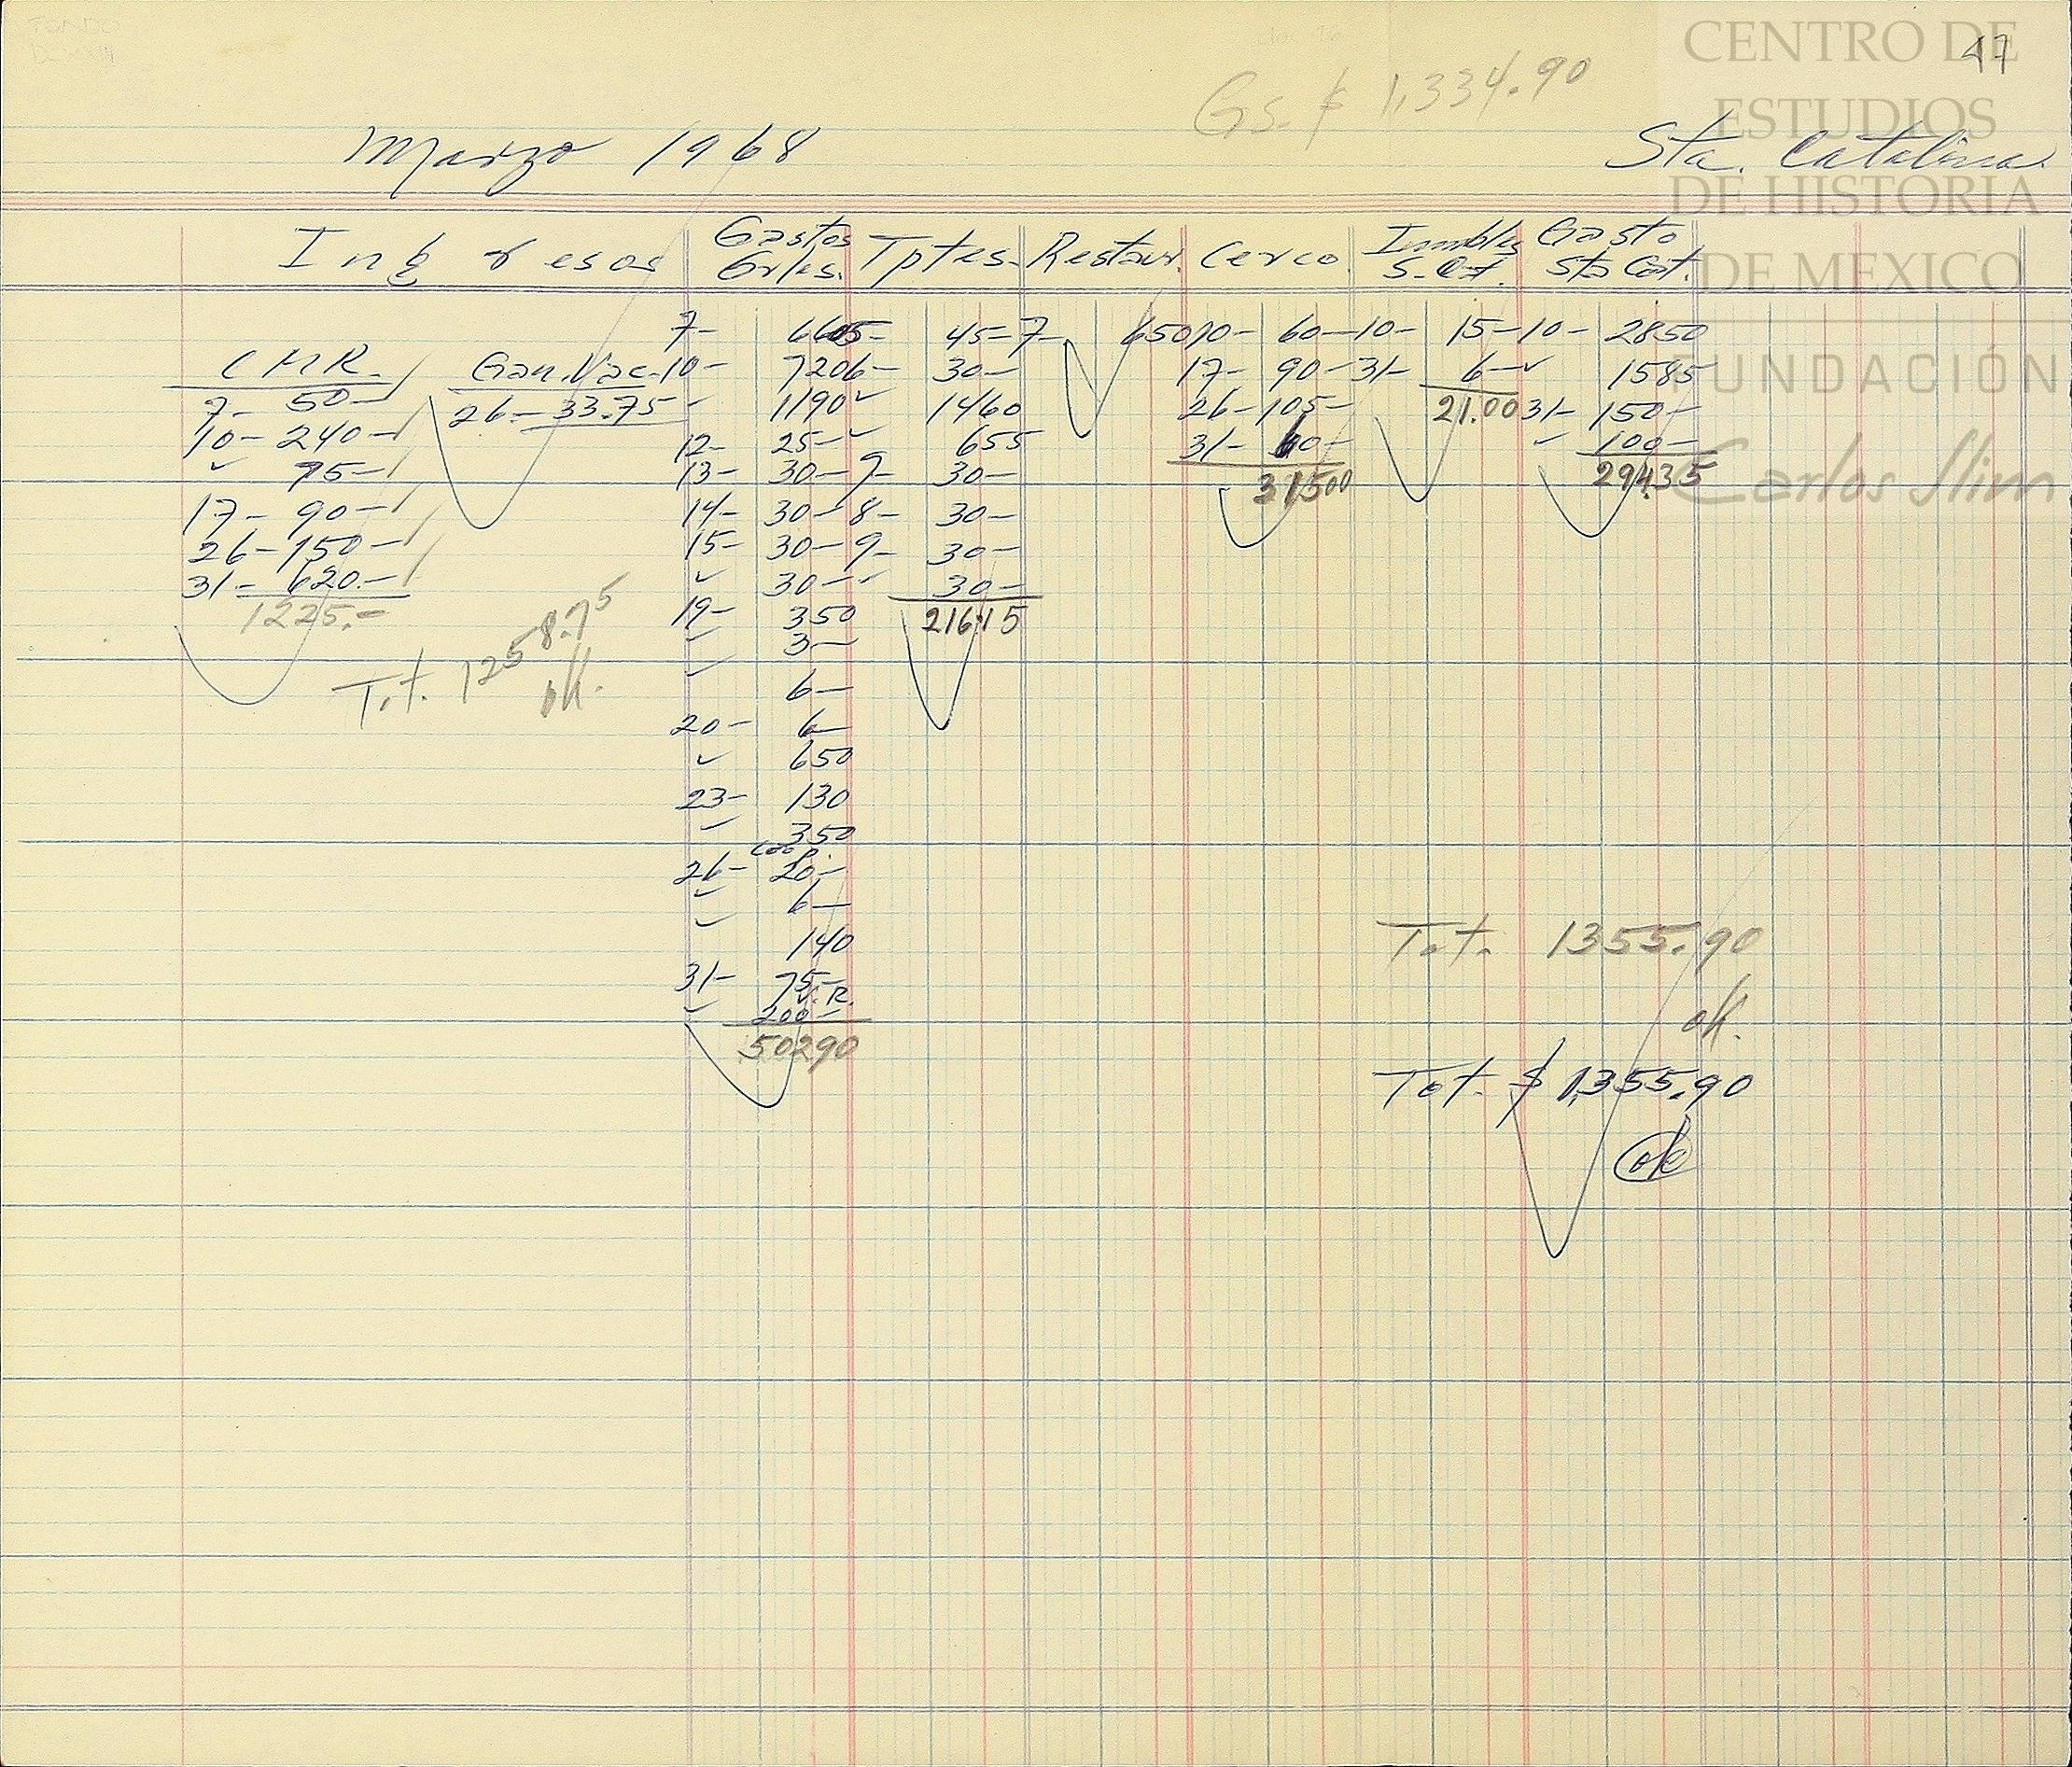 CENTRO DE
ESTUDIOS
DE HISTORIA
DE MEXICO
FUNDACIÓN
Carlos Slim
47
Gs. $ 1,334.90
Marzo 1968
Sta. Catalina
Ingresos
Gastos Grles.
Tptes.
Restaur.
Cerco
Inmbles S. Cat.
Gasto Sta Cat.
C M R.
7- 50-
10- 240-
✓ 75-
17- 90-
26- 150-
31- 620.-
1225.-
Gan. Vac.
26- 33.75
Tot. 1258.75
ok.
7- 6605
10- 720
✓ 1190
12- 25-
13- 30-
14- 30-
15- 30-
✓ 30-
19- 350
✓ 3-
✓ 6-
20- 6-
✓ 650
23- 130
✓ 350
26- 20-
✓ 6-
✓ 140
31- 75-
V. R.
✓ 200-
50290
45-
6- 30-
✓ 1460
✓ 655
7- 30-
8- 30-
9- 30-
✓ 30-
21615
7- 650
10- 60-
17- 90-
26- 105-
31- 60-
31500
10- 15-
31- 6-
21.00
10- 2850
✓ 1585
31- 150-
✓ 100-
29435
Tot. 1355.90
ok.
Tot. $ 1,355.90
ok